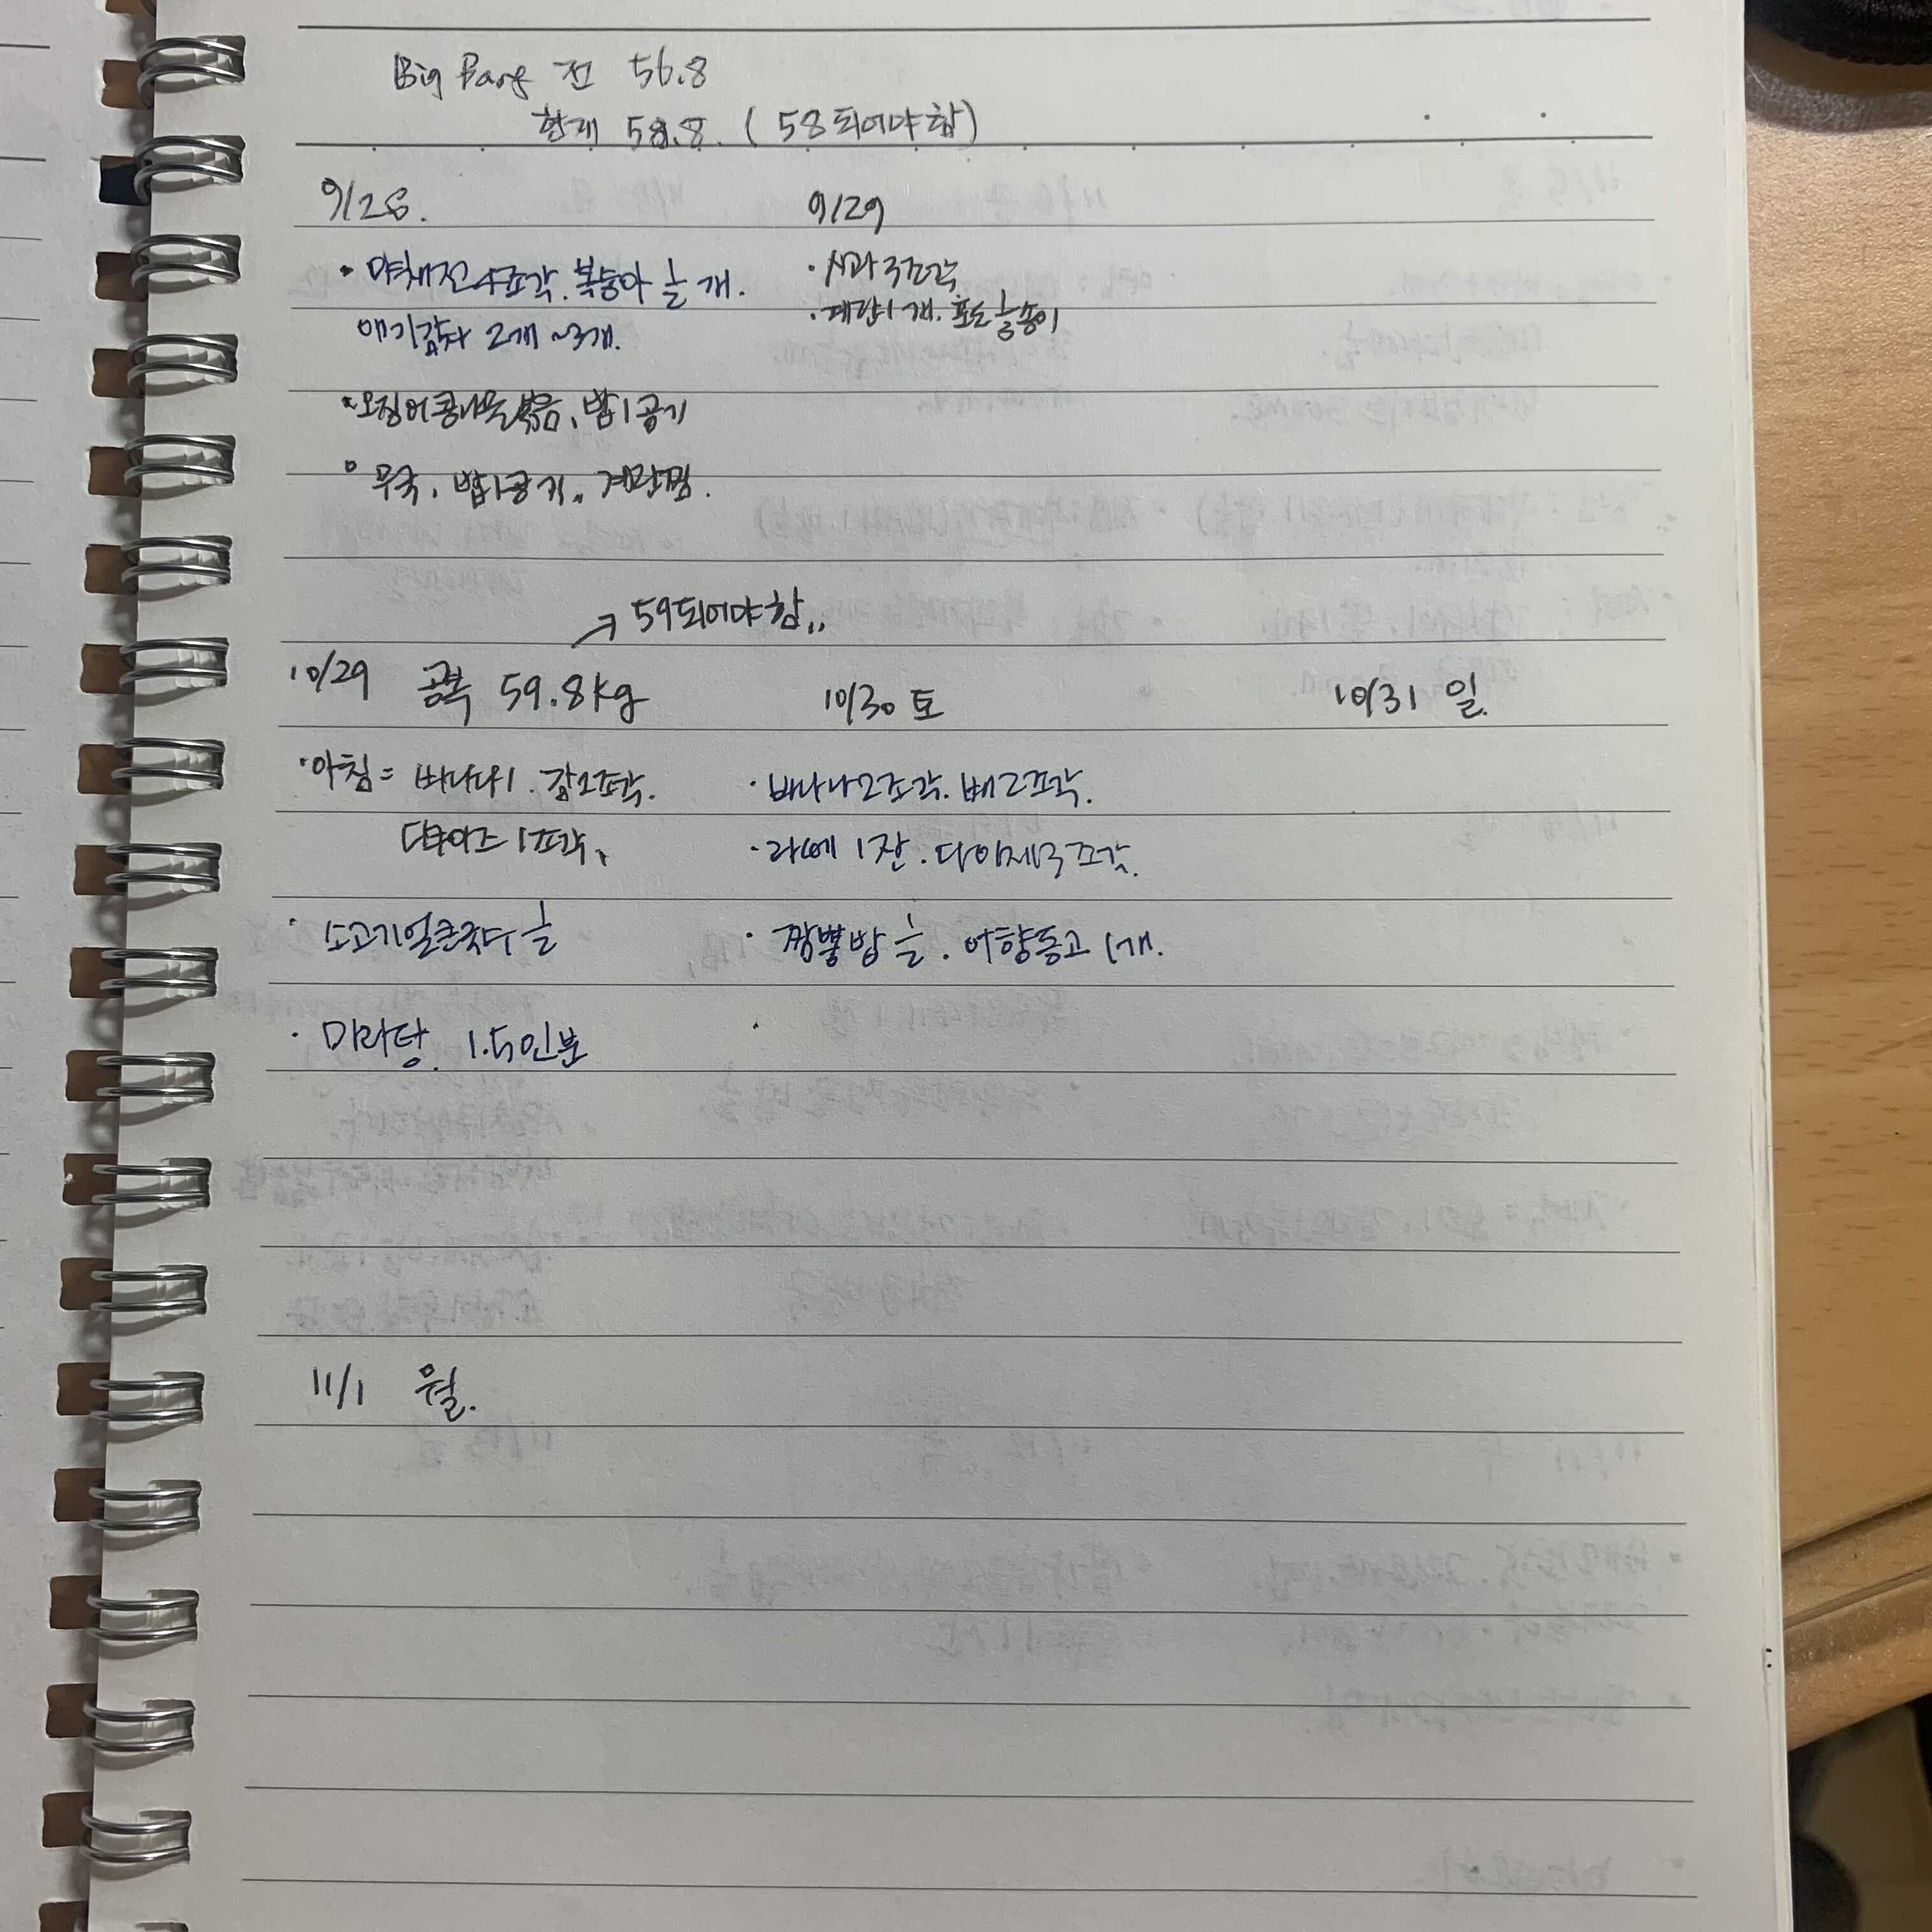 Big Bang 전 56.8
현재 58.8. (58되어야함)
9/28.
• 야채전 4조각. 복숭아 ½개.
애기감자 2개~3개.
• 오징어콩나물볶음, 밥1공기
• 무국, 밥1공기, 계란찜.
9/29
• 사과 3조각
• 계란1개. 포도 ½송이
→ 59되어야함,,
10/29 공복 59.8kg
• 아침= 바나나1. 감2조각.
1조각,
• 소고기얼큰국수 ½
• 마라탕. 1.5인분
10/30 토
• 바나나2조각. 배2조각.
• 라떼 1잔. 다이제3조각.
• 짬뽕밥 ½. 어향동고 1개.
•
10/31 일.
11/1 월.